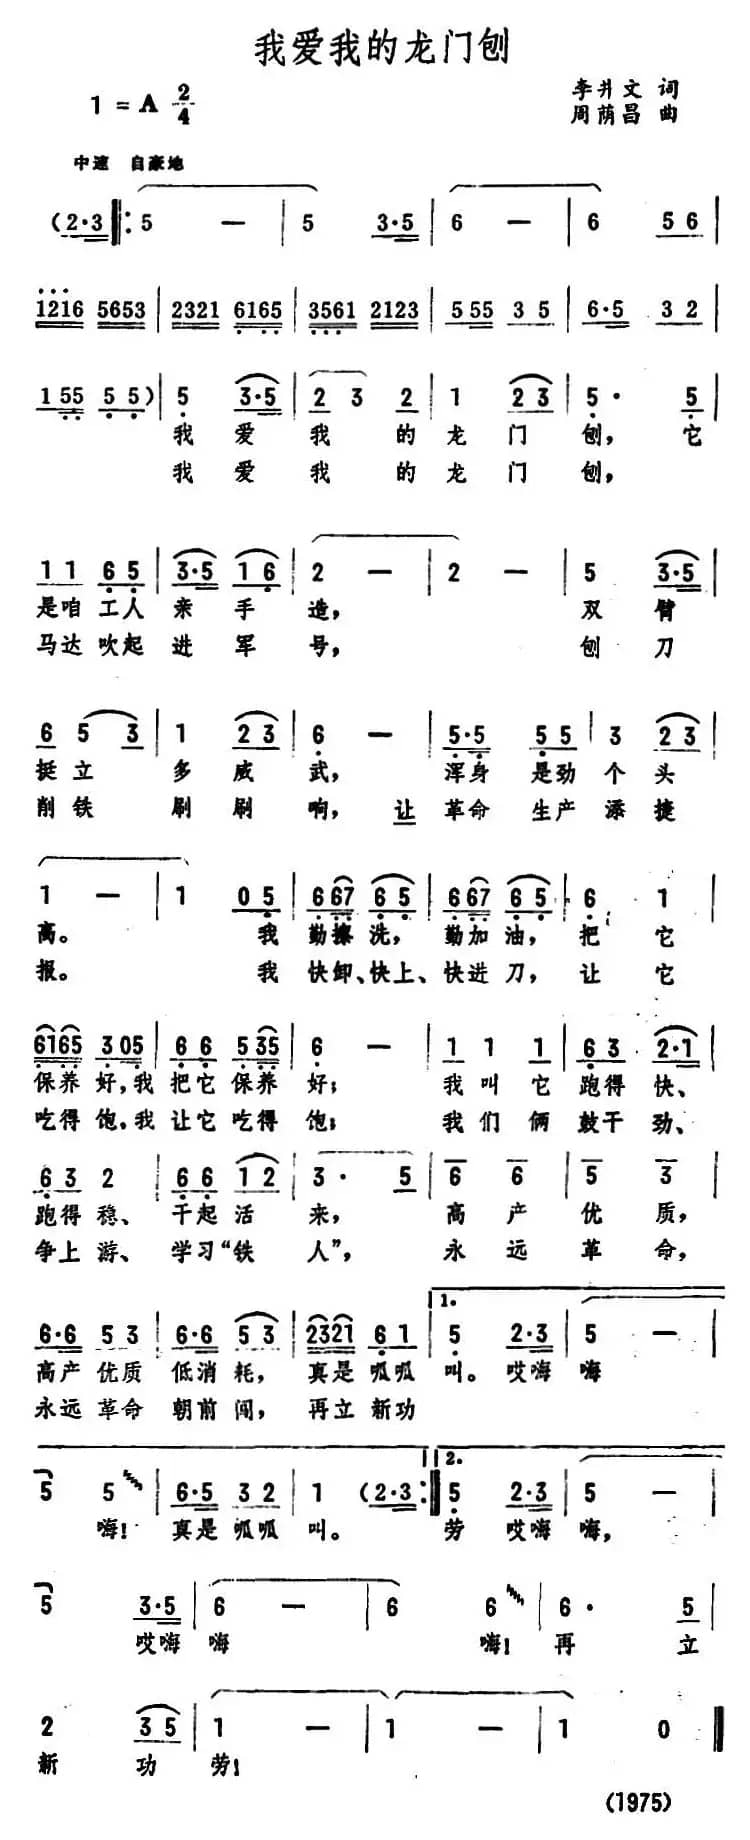 我爱我的龙门刨
李井文 词
1 = A 2/4
周荫昌 曲
中速 自豪地
(2·3 5 — 5 3·5 6 — 6 5 6
1216 5653 2321 6165 3561 2123 5 55 3 5 6·5 3 2
1 55 5 5) 5 3·5 2 3 2 1 2 3 5· 5
我 爱 我 的 龙 门 刨， 它
我 爱 我 的 龙 门 刨，
1 1 6 5 3·5 1 6 2 — 2 — 5 3·5
是咱 工人 亲 手 造， 双 臂
马达 吹起 进 军 号， 刨 刀
6 5 3 1 2 3 6 — 5·5 5 5 3 2 3
挺 立 多 威 武， 浑身 是劲 个 头
削 铁 刷 刷 响， 让 革命 生产 添 捷
1 — 1 0 5 6 67 6 5 6 67 6 5 6 1
高。 我 勤擦 洗， 勤加 油， 把 它
报。 我 快卸、快上、快进 刀， 让 它
6165 3 05 6 6 5 35 6 — 1 1 1 6 3 2·1
保养 好，我 把它 保养 好； 我 叫 它 跑得 快、
吃得 饱，我 让它 吃得 饱； 我 们 俩 鼓干 劲、
6 3 2 6 6 1 2 3 · 5 6 6 5 3
跑得 稳、 干起 活 来， 高 产 优 质，
争上 游、 学习“铁 人”， 永 远 革 命，
1.
6·6 5 3 6·6 5 3 2321 6 1 5 2·3 5 —
高产 优质 低消 耗， 真是 呱呱 叫。 哎嗨 嗨
永远 革命 朝前 闯， 再立 新功
2.
5 5 6·5 3 2 1 (2·3 5 2·3 5 —
嗨！ 真是 呱呱 叫。 劳 哎嗨 嗨，
5 3·5 6 — 6 6 6· 5
哎嗨 嗨 嗨！ 再 立
2 3 5 1 — 1 — 1 0
新 功 劳！
(1975)